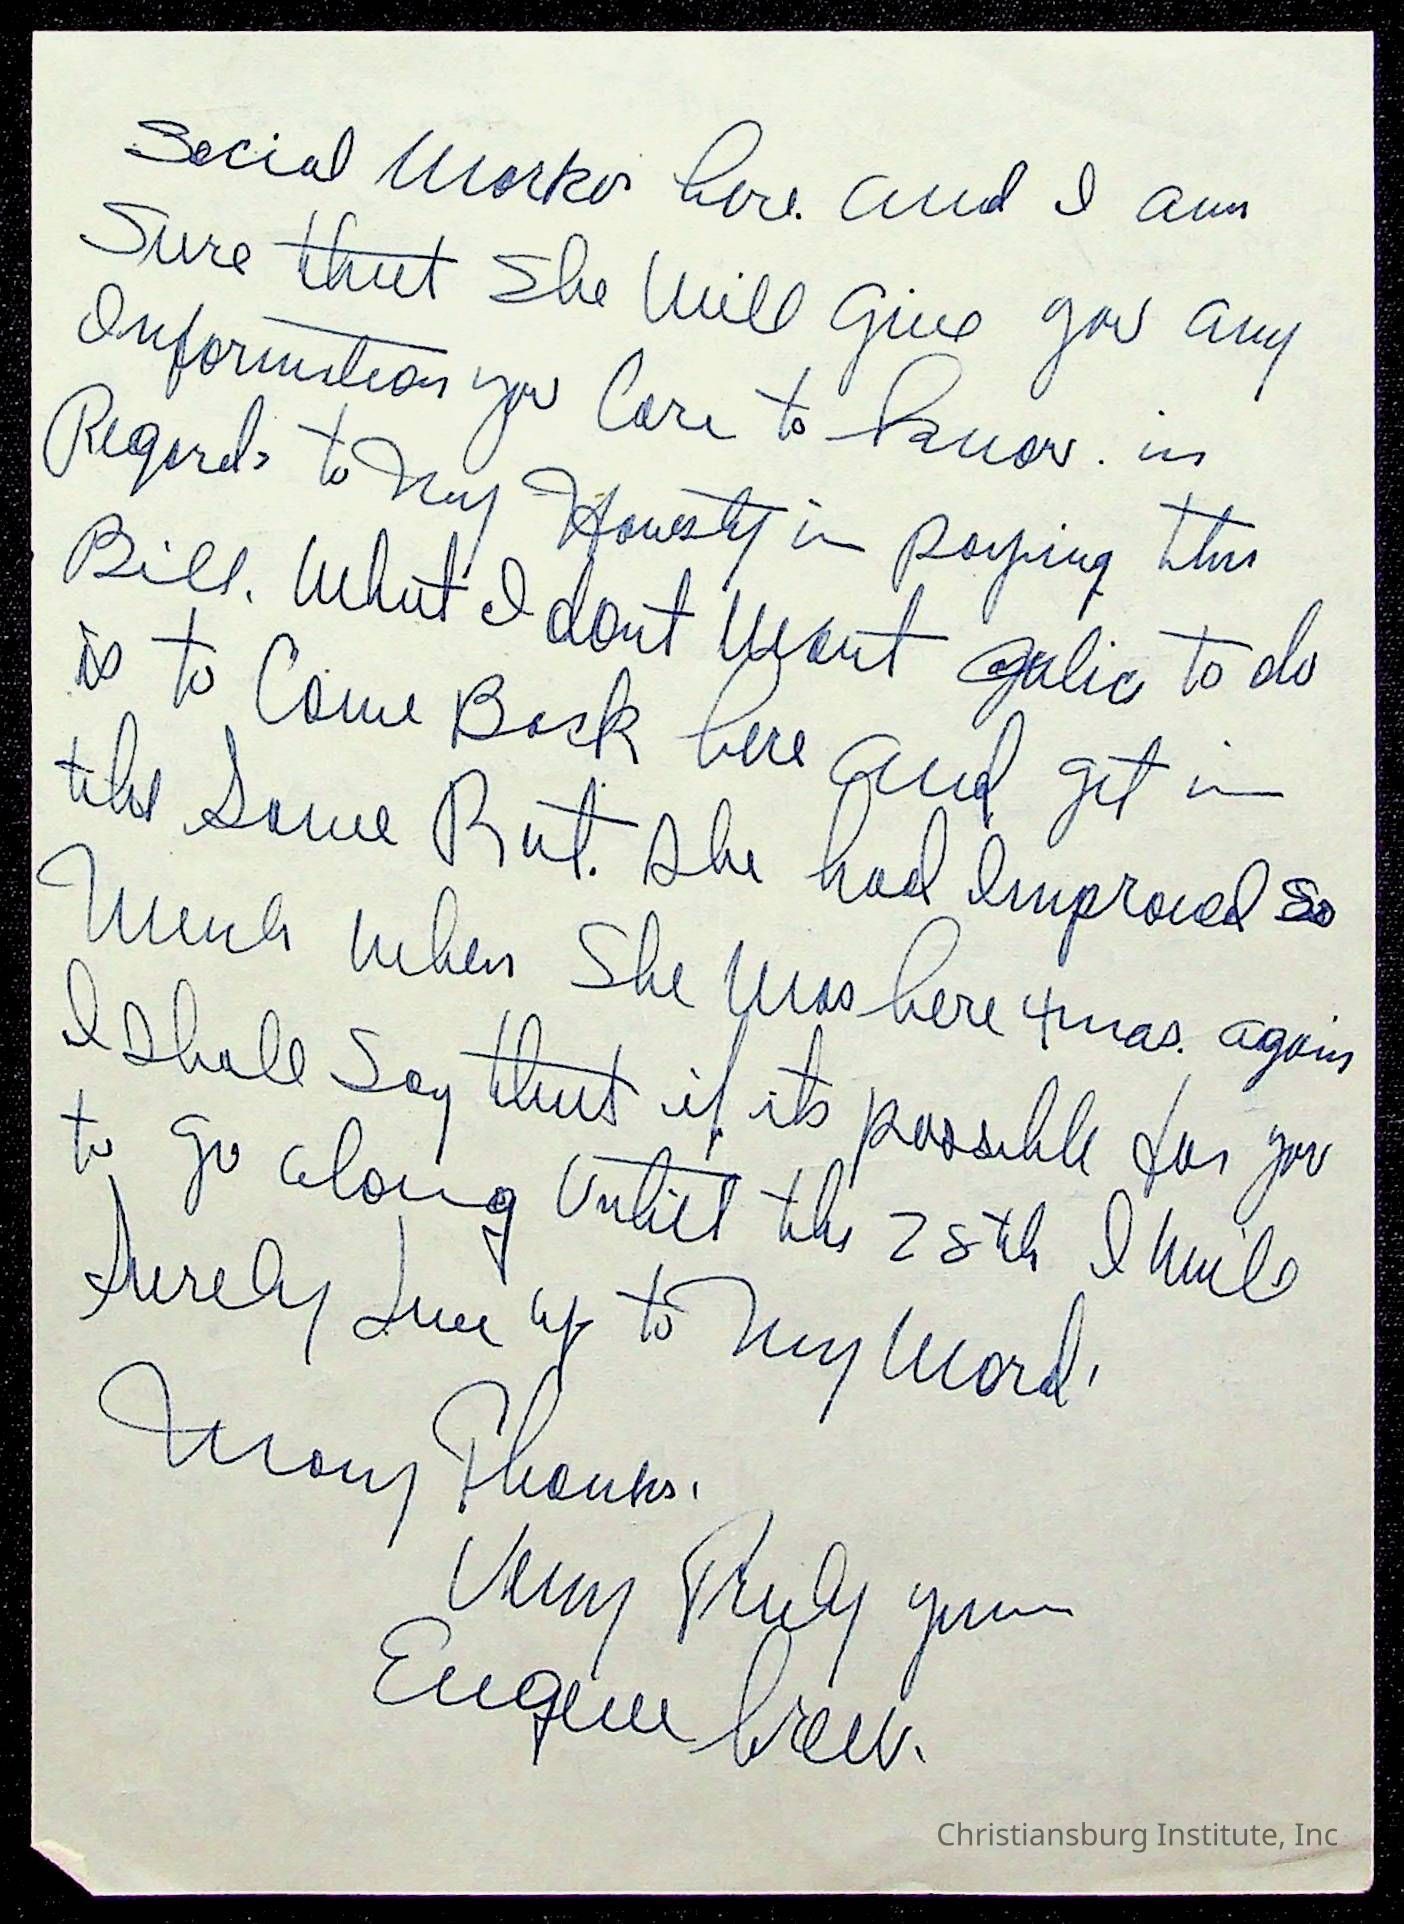 Social Worker here. and I am
Sure that She Will Give you any
Information you Care to know. in
Regards to My Honesty in paying this
Bill. What I dont Want to do
is to Come Back here and get in
the Same Rut. She had Improved so
Much when She Was here 4 mos. again
I Shall Say that if its possible for you
to go along Untill the 28th I Will
Surely Live up to My Word.
Many Thanks.
Very Truly yours
Eugene Crew.
Christiansburg Institute, Inc